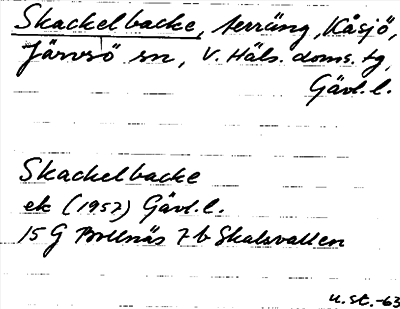 Skackelbacke, terräng, Kåsjö,
Järvsö sn, V. Häls. doms. tg,
Gävl. l.
Skackelbacke
ek (1957) Gävl. l.
15 G Bollnäs 7 b Skalsvallen
u.st.-63